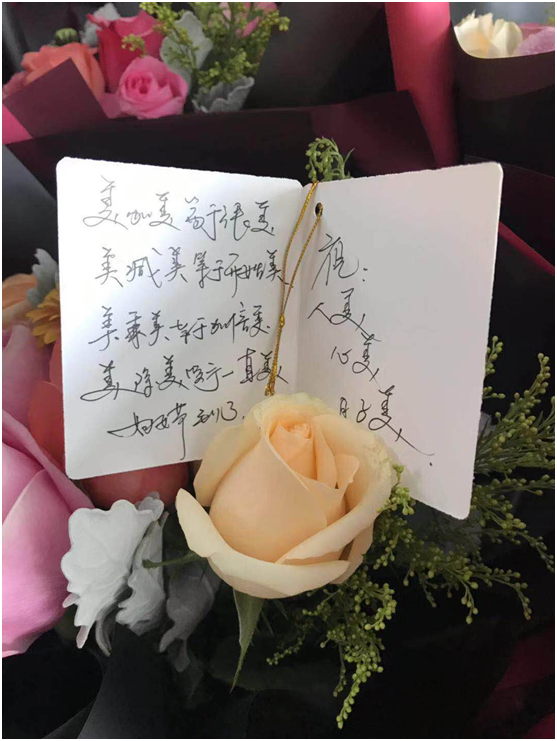 美加美等于很美
美减美等于开始美
美乘美等于加倍美
美除美等于一真美
妇女节到了.
祝:
人美
心美
日子美.